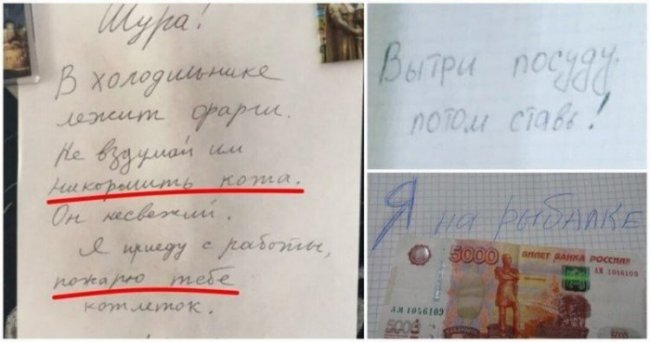 Шура!
В холодильнике
лежит фарш.
Не вздумай им
накормить кота.
Он несвежий.
Я приеду с работы,
пожарю тебе
котлеток.
Вытри посуду,
потом ставь!
Я на рыбалке
5000 БИЛЕТ БАНКА РОССИИ
5000